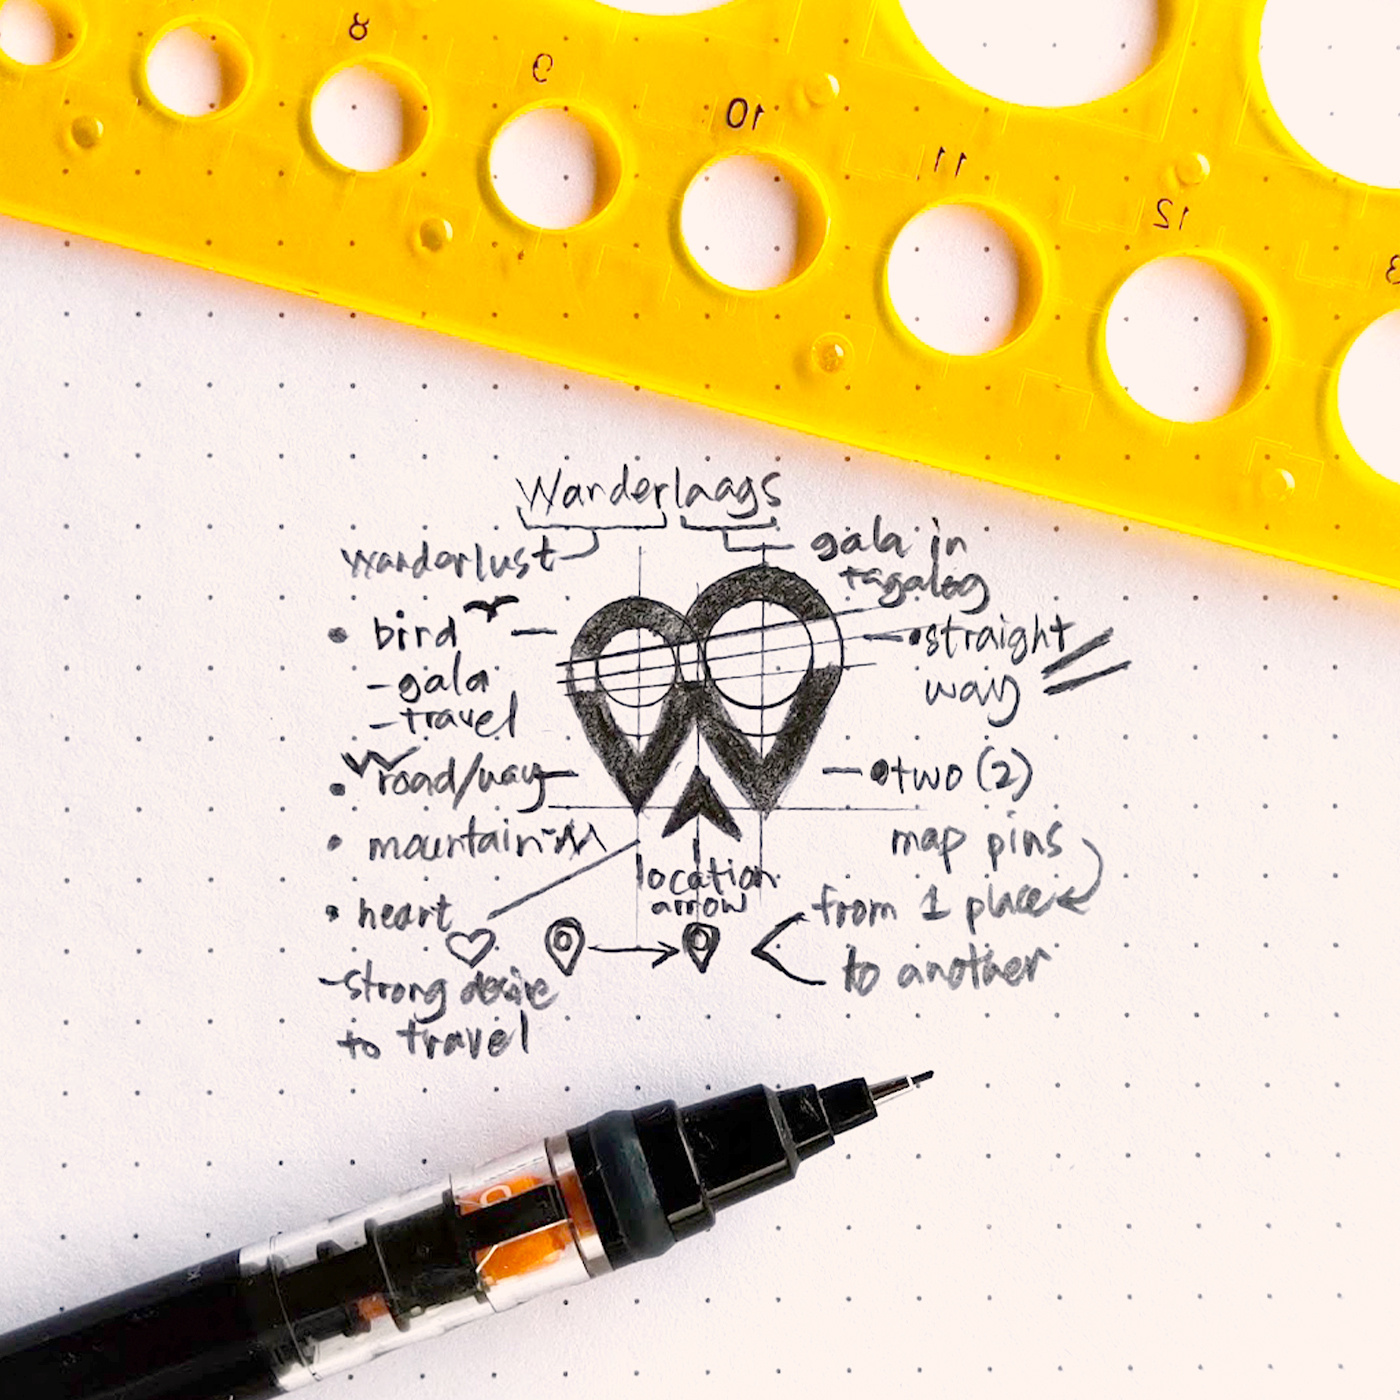 8
9
10
11
12
Wanderlaags
wanderlust
gala in
tagalog
• bird
- gala
- travel
• straight
way
• road/way
• two (2)
map pins
• mountain
from 1 place
to another
location
arrow
• heart
- strong desire
to travel